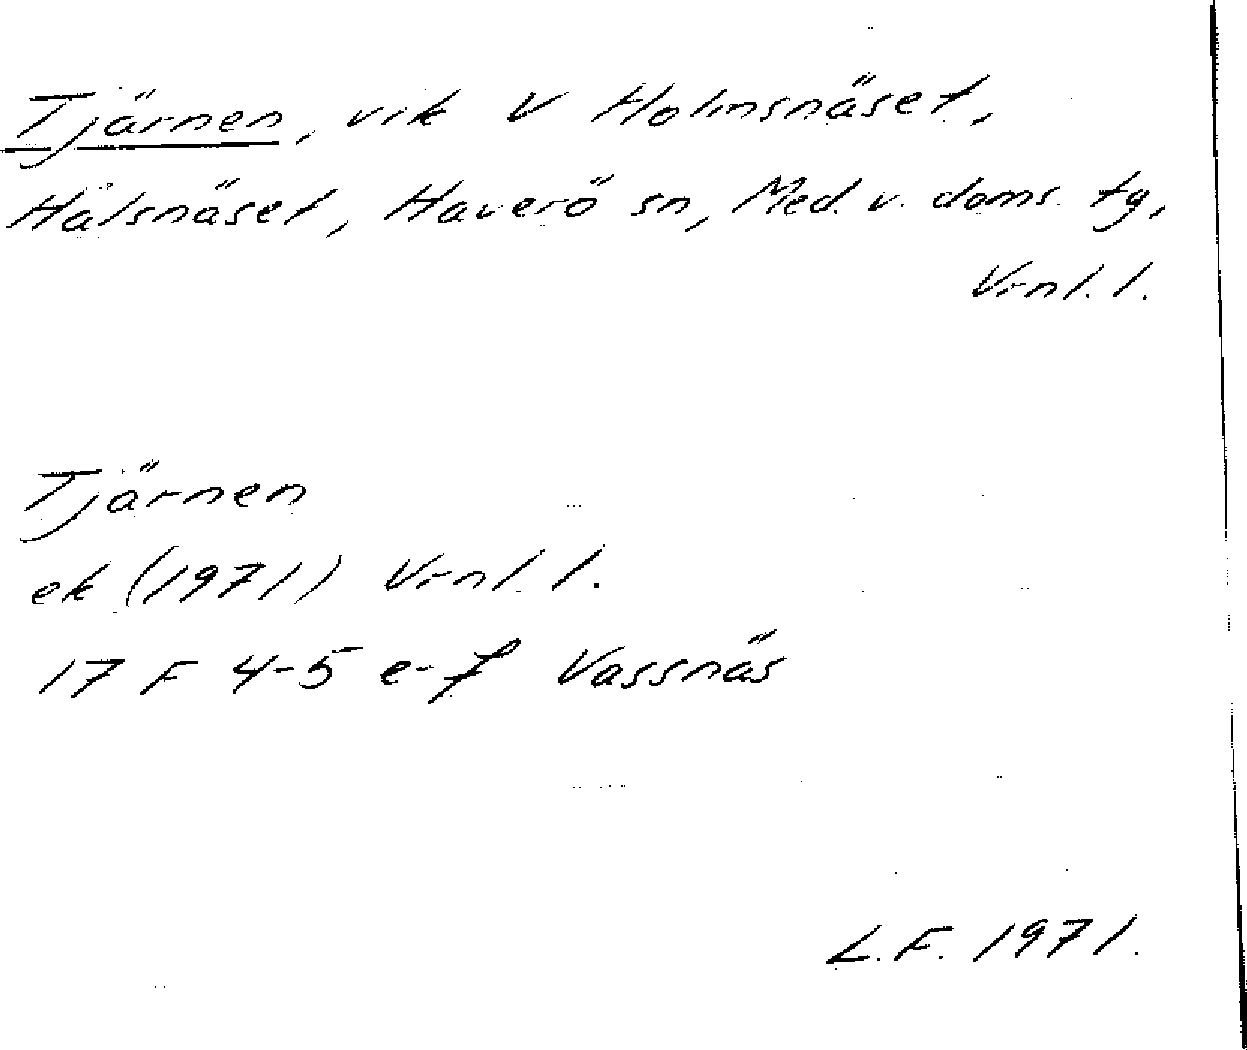 Tjärnen, vik V Holmsnäset,
Hälsnäset, Haverö sn, Med. v. doms. tg,
Vrnl. l.
Tjärnen
ek (1971) Vrnl. l.
17 F 4-5 e-f Vassnäs
L.F. 1971.